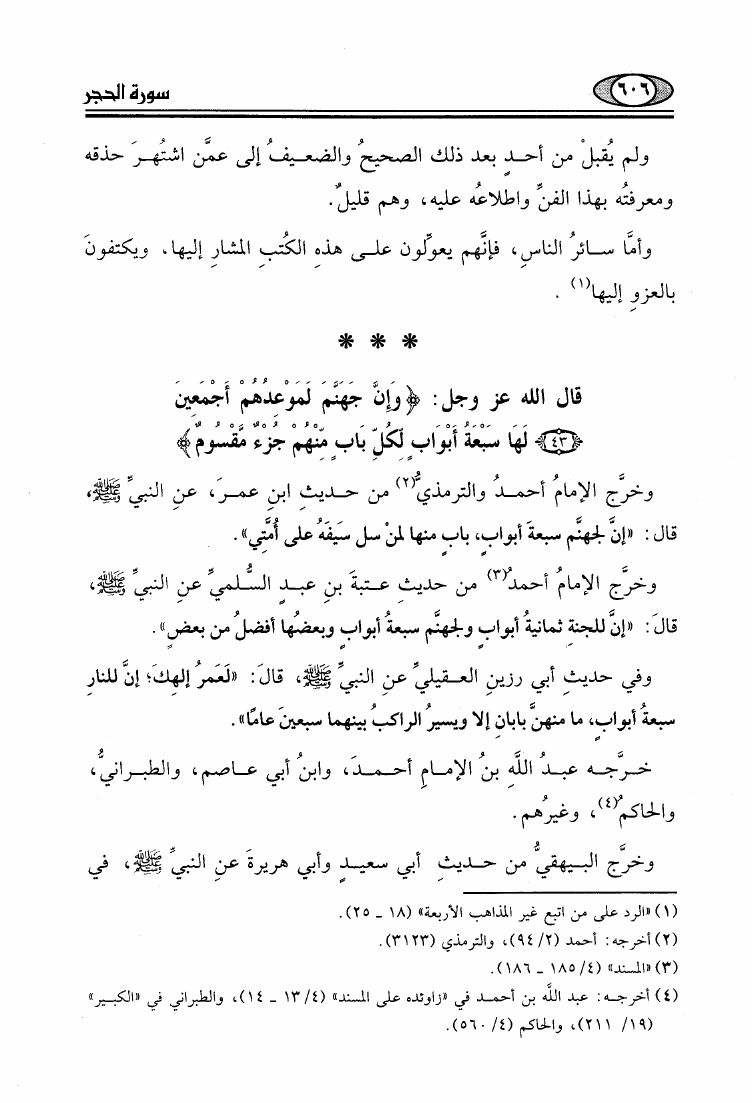 ٦٠٦
سورة الحجر
ولم يُقبلْ من أحدٍ بعد ذلك الصحيحُ والضعيفُ إلى عمَّن اشتُهرَ حذقه
ومعرفتُه بهذا الفنِّ واطلاعُه عليه، وهم قليلٌ.
وأمَّا سائرُ الناسِ، فإنَّهم يعوِّلون على هذهِ الكُتبِ المشارِ إليها. ويكتفونَ
بالعزوِ إليها(١) .
* * *
قال الله عز وجل: ﴿ وَإِنَّ جَهَنَّمَ لَمَوْعِدُهُمْ أَجْمَعِينَ
﴿٤٣﴾ لَهَا سَبْعَةُ أَبْوَابٍ لِّكُلِّ بَابٍ مِّنْهُمْ جُزْءٌ مَّقْسُومٌ ﴾
وخرَّج الإمامُ أحمدُ والترمذيُّ(٢) من حديثِ ابنِ عمرَ، عنِ النبيِّ ﷺ،
قال: «إنَّ لجهنَّم سبعةَ أبوابٍ، بابٍ منها لمنْ سل سَيفَهُ على أُمَّتِي».
وخرَّج الإمامُ أحمدُ(٣) من حديثِ عتبةَ بنِ عبدٍ السُّلميِّ عنِ النبيِّ ﷺ،
قالَ: «إنَّ للجنةِ ثمانيةُ أبوابٍ ولجهنَّم سبعةُ أبوابٍ وبعضُها أفضلُ من بعضٍ».
وفي حديثِ أبي رزينِ العقيليِّ عنِ النبيِّ ﷺ، قالَ: «لَعَمرُ إلهكَ؛ إنَّ للنارِ
سبعةُ أبوابٍ، ما منهنَّ بابانِ إلا ويسيرُ الراكبُ بينهما سبعينَ عامًا».
خرَّجه عبدُ اللَّهِ بنُ الإمامِ أحمدَ، وابنُ أبي عاصم، والطبرانيُّ،
والحاكمُ(٤)، وغيرُهم.
وخرَّج البيهقيُّ من حديثِ أبي سعيدٍ وأبي هريرةَ عنِ النبيِّ ﷺ، في
(١) «الرد على من اتبع غير المذاهب الأربعة» (١٨ ـ ٢٥).
(٢) أخرجه: أحمد (٢/ ٩٤)، والترمذي (٣١٢٣).
(٣) «المسند» (٤/ ١٨٥ ـ ١٨٦).
(٤) أخرجه: عبد اللَّه بن أحمد في «زاوئده على المسند» (٤/ ١٣ ـ ١٤)، والطبراني في «الكبير»
(١٩/ ٢١١)، والحاكم (٤/ ٥٦٠).